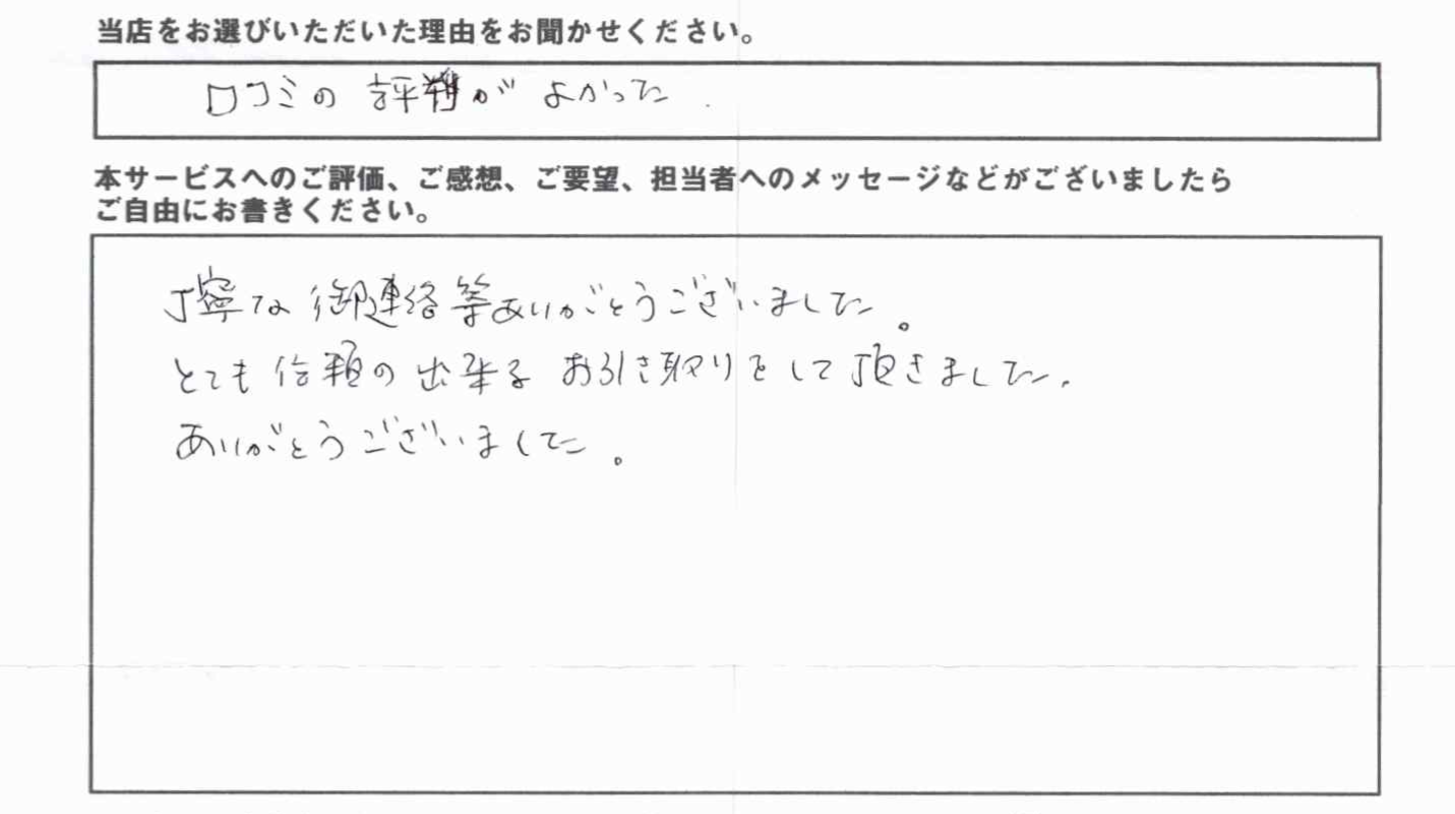 当店をお選びいただいた理由をお聞かせください。
口コミの評判がよかった.
本サービスへのご評価、ご感想、ご要望、担当者へのメッセージなどがございましたら
ご自由にお書きください。
丁寧な御連絡等ありがとうございました。
とても信頼の出来る お引き取りをして頂きました.
ありがとうございました。